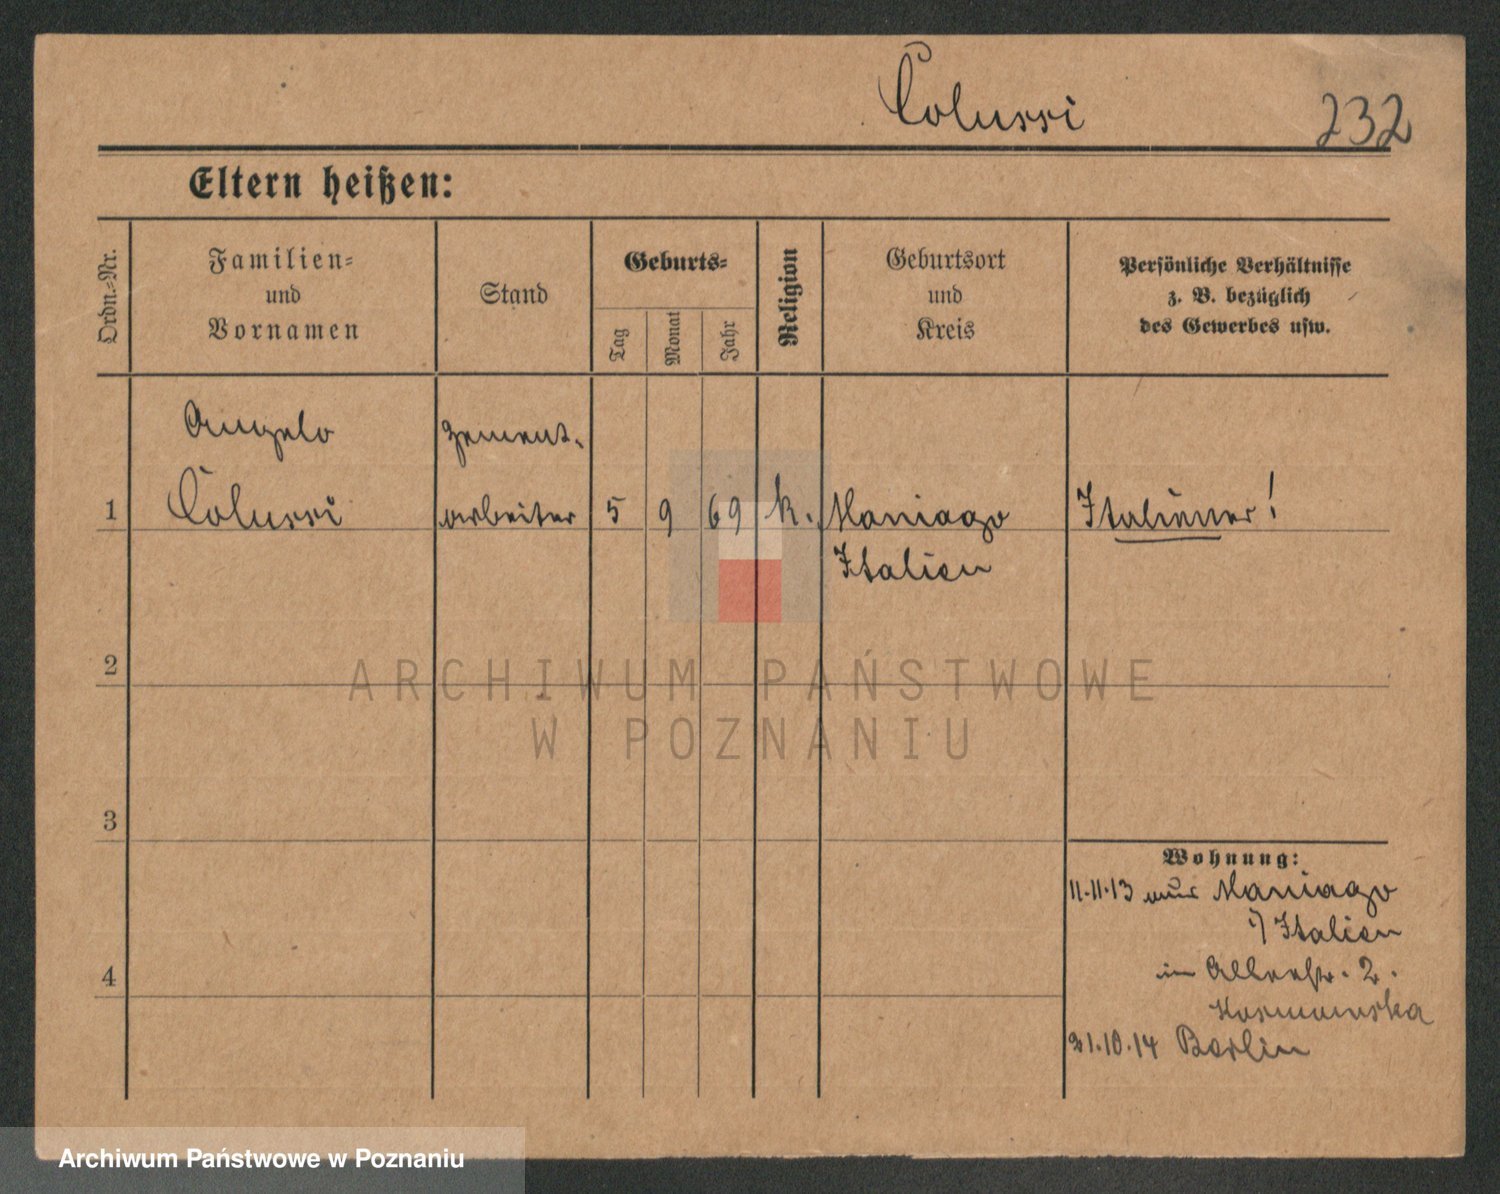 Colussi
232
Eltern heißen:
Ordn.-Nr.
Familien-
und
Vornamen
Stand
Geburts-
Tag
Monat
Jahr
Religion
Geburtsort
und
Kreis
Persönliche Verhältnisse
z. B. bezüglich
des Gewerbes usw.
Angelo Zement-
1 Colussi arbeiter 5 9 69 k. Maniago Italiener!
Italien
2
ARCHIWUM PAŃSTWOWE
W POZNANIU
3
Wohnung:
11.11.13 aus Maniago
Italien
4
in 2.
21.10.14 Berlin
Archiwum Państwowe w Poznaniu